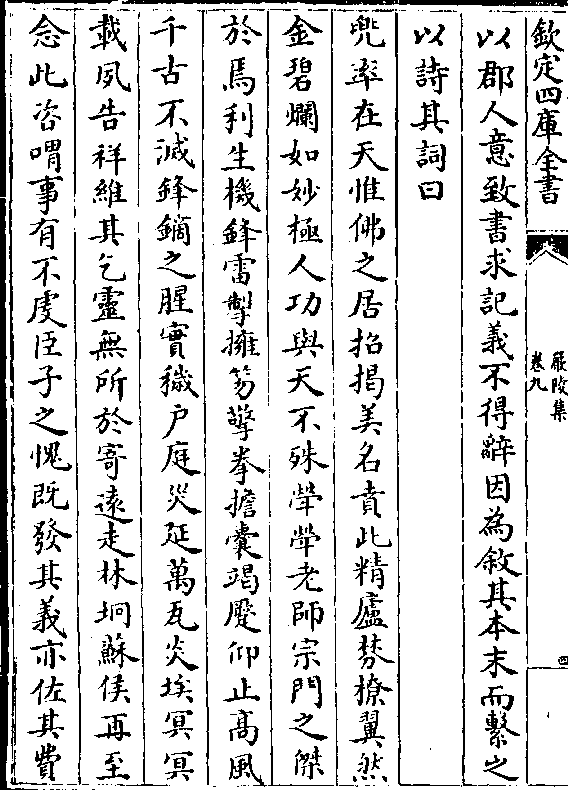 欽定四庫全書
嚴陵集
卷九
四
以郡人意致書求記義不得辭因為敘其本末而繫之
以詩其詞曰
兜率在天惟佛之居招揭美名賁此精廬棼橑翼然
金碧爛如妙極人功與天不殊犖犖老師宗門之傑
於焉利生機鋒雷掣擁笏擎拳擔囊竭蹷仰止高風
千古不滅鋒鏑之腥實穢户庭災延萬瓦炎埃冥冥
載夙告祥維其乞靈無所於寄遠走林坰蘇侯再至
念此咨喟事有不虔臣子之愧既發其義亦佐其費